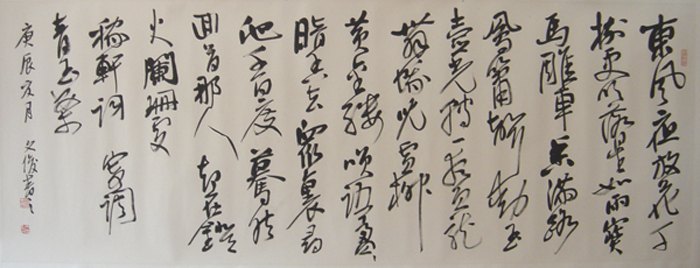 東風夜放花千
樹更吹落星如雨寶
馬雕車香滿路
鳳簫聲動玉
壺光轉一夜魚龍
舞蛾兒雪柳
黄金縷笑語盈
暗香去衆裏尋
他千百度驀然
回首那人却在燈
火闌珊處
稼軒詞 寄調
青玉案
庚辰 月 俊書